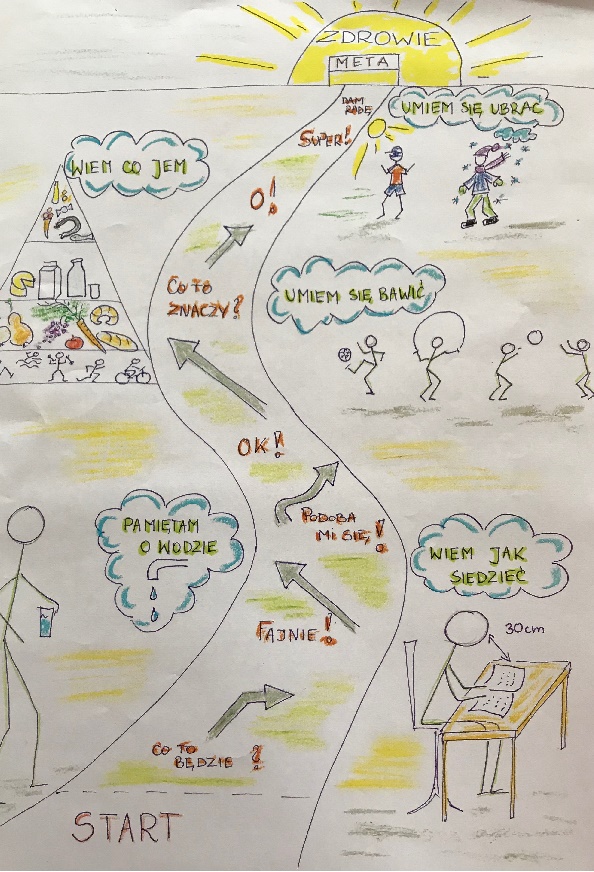 ZDROWIE
META
DAM
RADĘ
UMIEM SIĘ UBRAĆ
SUPER!
WIEM CO JEM
O!
CO TO
ZNACZY?
UMIEM SIĘ BAWIĆ
OK!
PODOBA
MI SIĘ!
PAMIĘTAM
O WODZIE
WIEM JAK
SIEDZIEĆ
30cm
FAJNIE!
CO TO
BĘDZIE ?
START